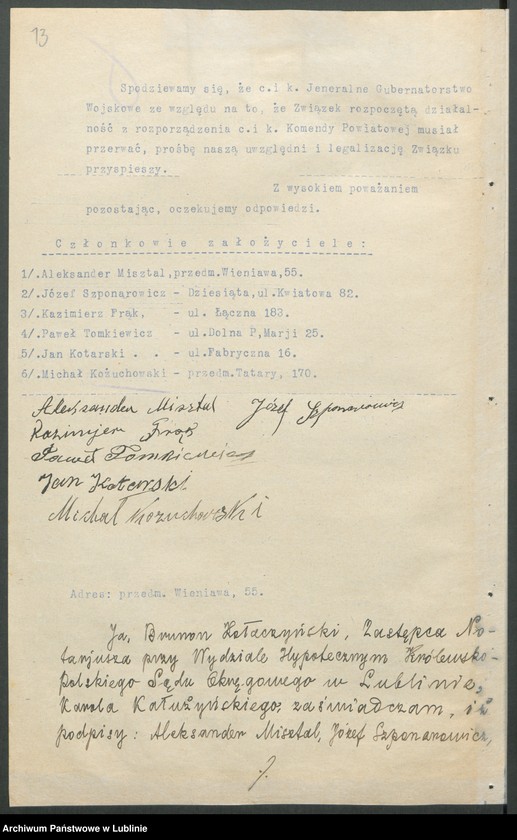 13
Spodziewamy się, że c.i k. Jeneralne Gubernatorstwo
Wojskowe ze względu na to, że Związek rozpoczętą działal-
ność z rozporządzenia c.i k. Komendy Powiatowej musiał
przerwać, prośbę naszą uwzględni i legalizację Związku
przyspieszy.
Z wysokiem poważaniem
pozostając, oczekujemy odpowiedzi.
Członkowie założyciele:
1/.Aleksander Misztal,przedm.Wieniawa,55.
2/.Józef Szponarowicz - Dziesiąta,ul.Kwiatowa 82.
3/.Kazimierz Frąk, - ul. Łączna 183.
4/.Paweł Tomkiewicz - ul.Dolna P,Marji 25.
5/.Jan Kotarski . . - ul.Fabryczna 16.
6/.Michał Kożuchowski - przedm.Tatary, 170.
Aleksander Misztal Józef Szponarowicz
Kazimierz Frąk
Paweł Tomkiewicz
Jan Kotarski
Michał Kożuchowski
Adres: przedm. Wieniawa, 55.
Ja, Brunon Kołaczyński, Zastępca No-
tarjusza przy Wydziale Hypotecznym Królewsko-
Polskiego Sądu Okręgowego w Lublinie,
Karola Kałużyńskiego; zaświadczam, iż
podpisy: Aleksander Misztal, Józef Szponarowicz,
./.
Archiwum Państwowe w Lublinie